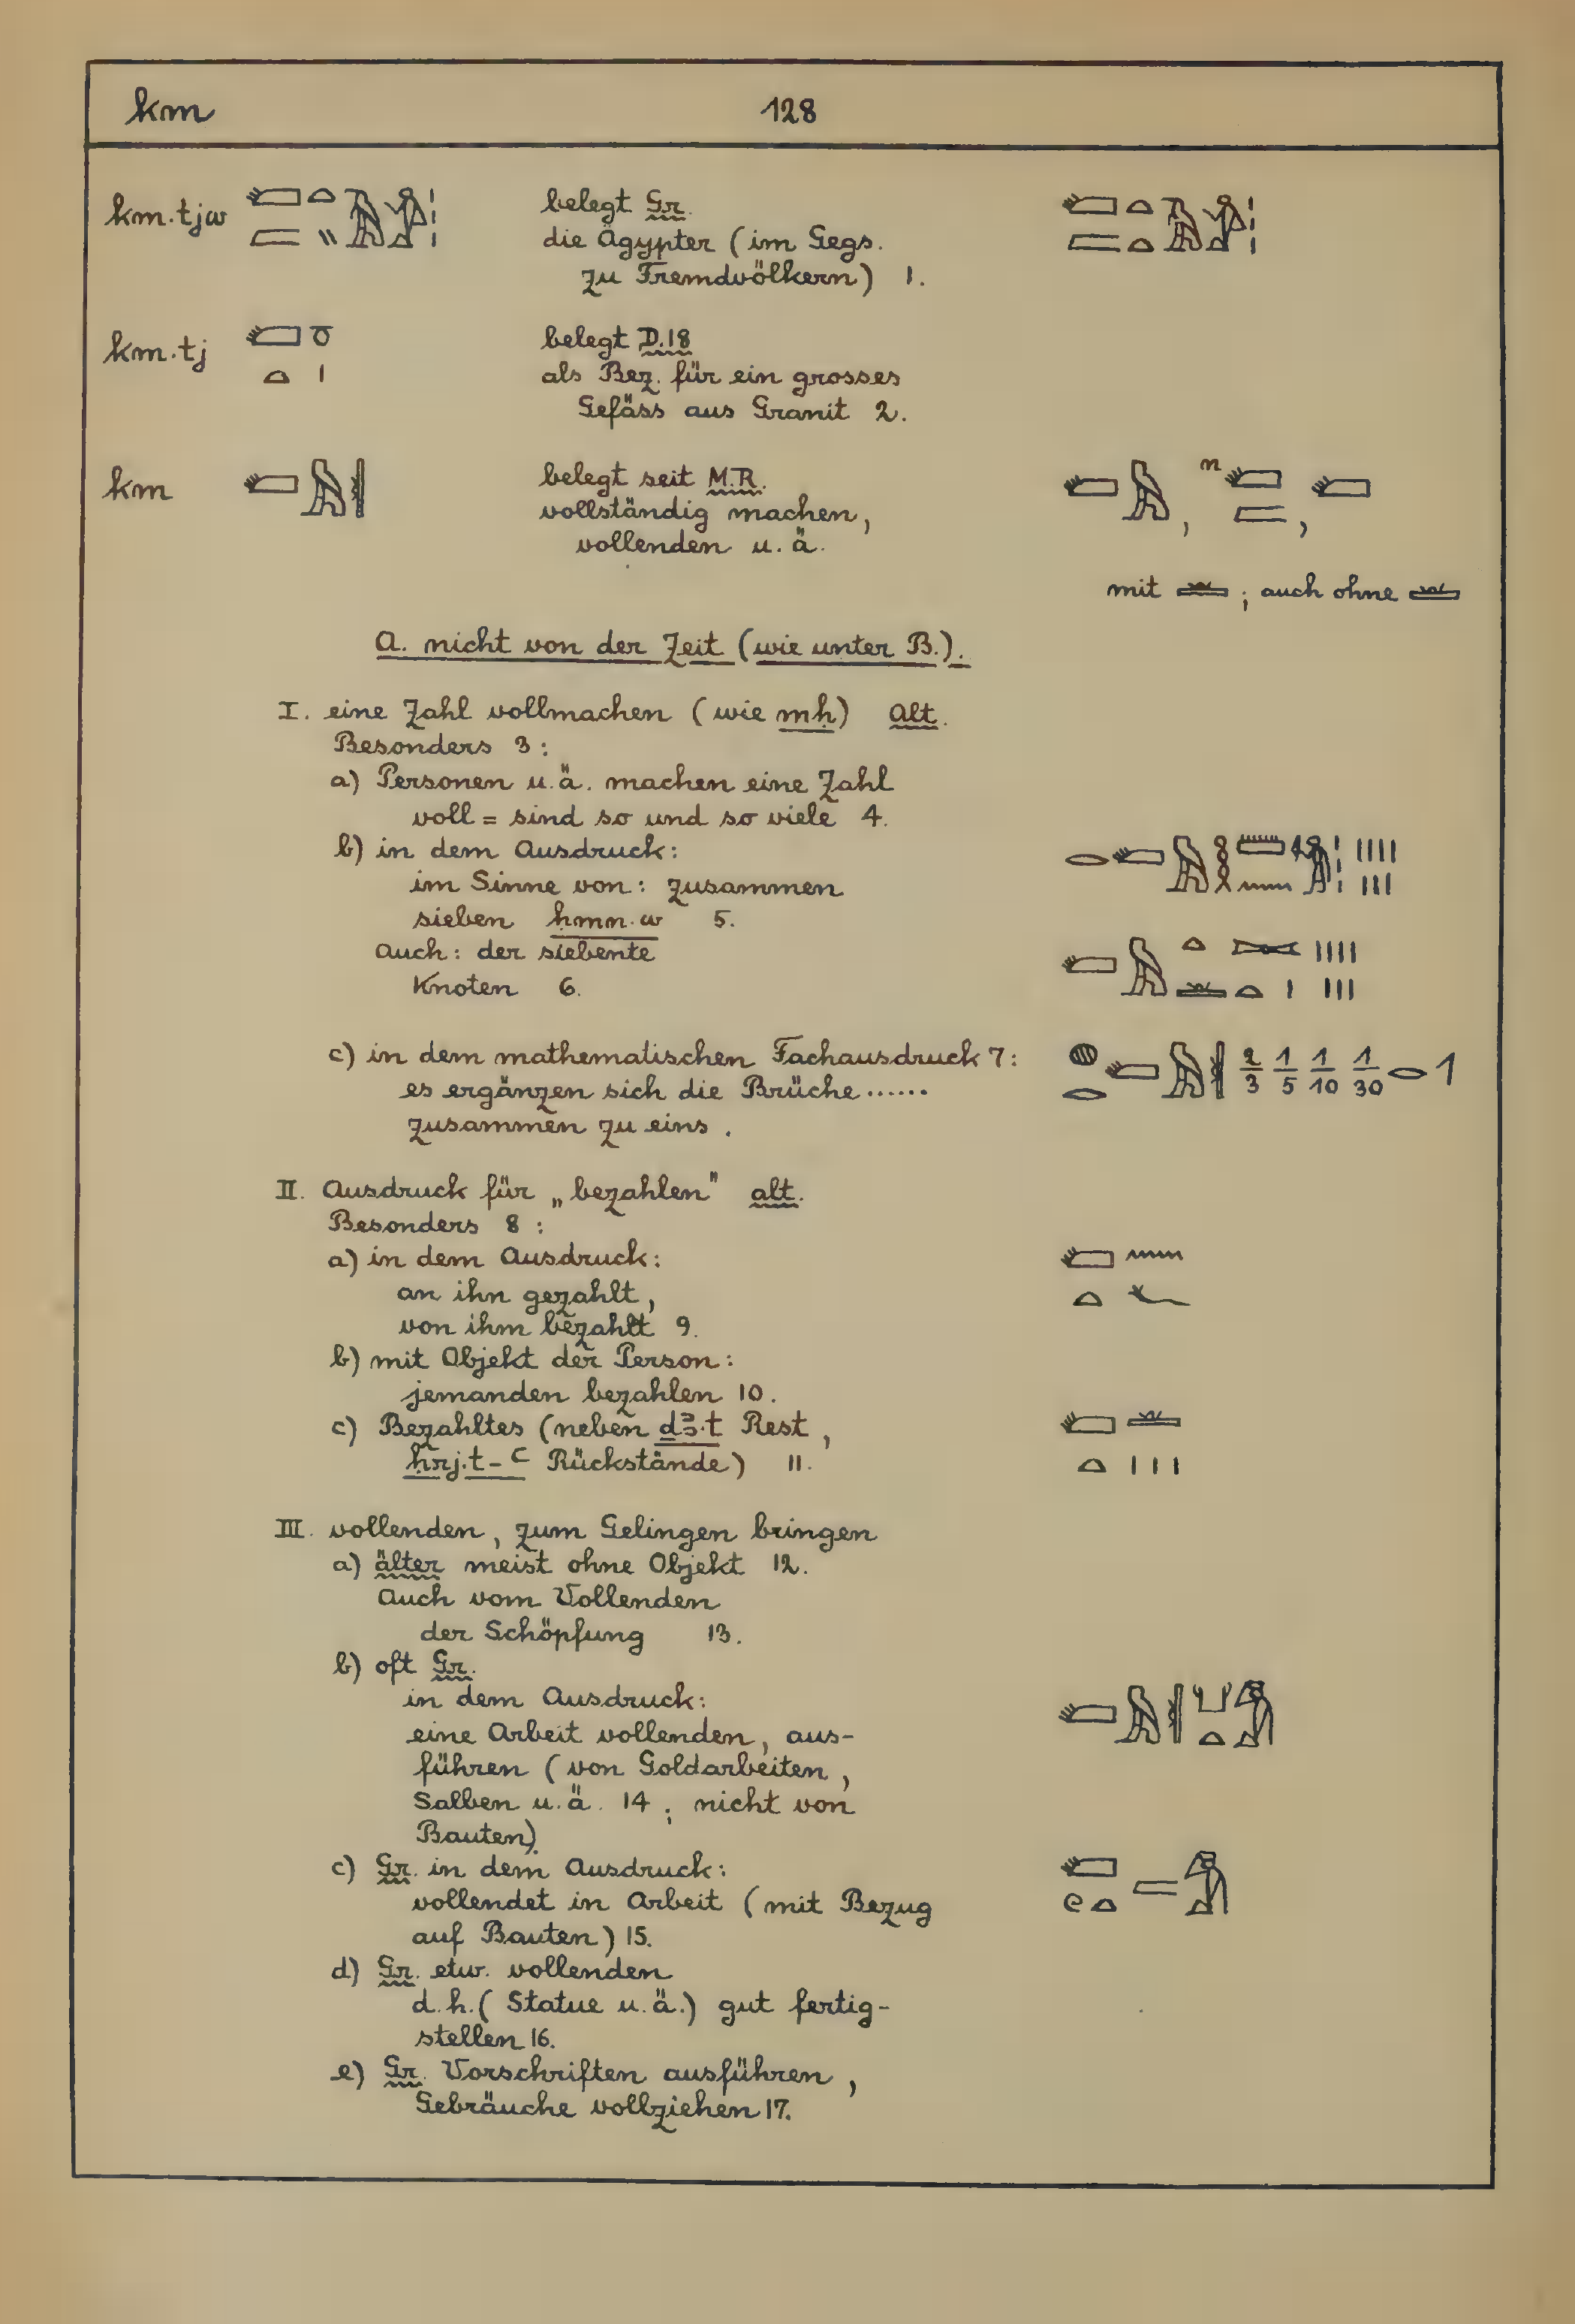 km 128
km.tjw belegt Gr.
die Ägypter (im Gegs.
zu Fremdvölkern) 1.
km.tj belegt D.18
als Bez. für ein grosses
Gefäss aus Granit 2.
km belegt seit M.R.
vollständig machen,
vollenden u. ä.
mit ; auch ohne
A. nicht von der Zeit (wie unter B.).
I. eine Zahl vollmachen (wie mḥ) Alt.
Besonders 3:
a) Personen u.ä. machen eine Zahl
voll = sind so und so viele 4.
b) in dem Ausdruck:
im Sinne von: zusammen
sieben ḥmn.w 5.
Auch: der siebente
Knoten 6.
c) in dem mathematischen Fachausdruck 7: 2/3 1/5 1/10 1/30 1
es ergänzen sich die Brüche ......
zusammen zu eins.
II. Ausdruck für „bezahlen" alt.
Besonders 8:
a) in dem Ausdruck:
an ihn gezahlt,
von ihm bezahlt 9.
b) mit Objekt der Person:
jemanden bezahlen 10.
c) Bezahltes (neben ḏꜣ.t Rest,
ḥrj.t-ꜥ Rückstände) 11.
III. vollenden, zum Gelingen bringen
a) älter meist ohne Objekt 12.
Auch vom Vollenden
der Schöpfung 13.
b) oft Gr.
in dem Ausdruck:
eine Arbeit vollenden, aus-
führen (von Goldarbeiten,
Salben u.ä. 14; nicht von
Bauten).
c) Gr. in dem Ausdruck:
vollendet in Arbeit (mit Bezug
auf Bauten) 15.
d) Gr. etw. vollenden
d.h. (Statue u.ä.) gut fertig-
stellen 16.
e) Gr. Vorschriften ausführen,
Gebräuche vollziehen 17.